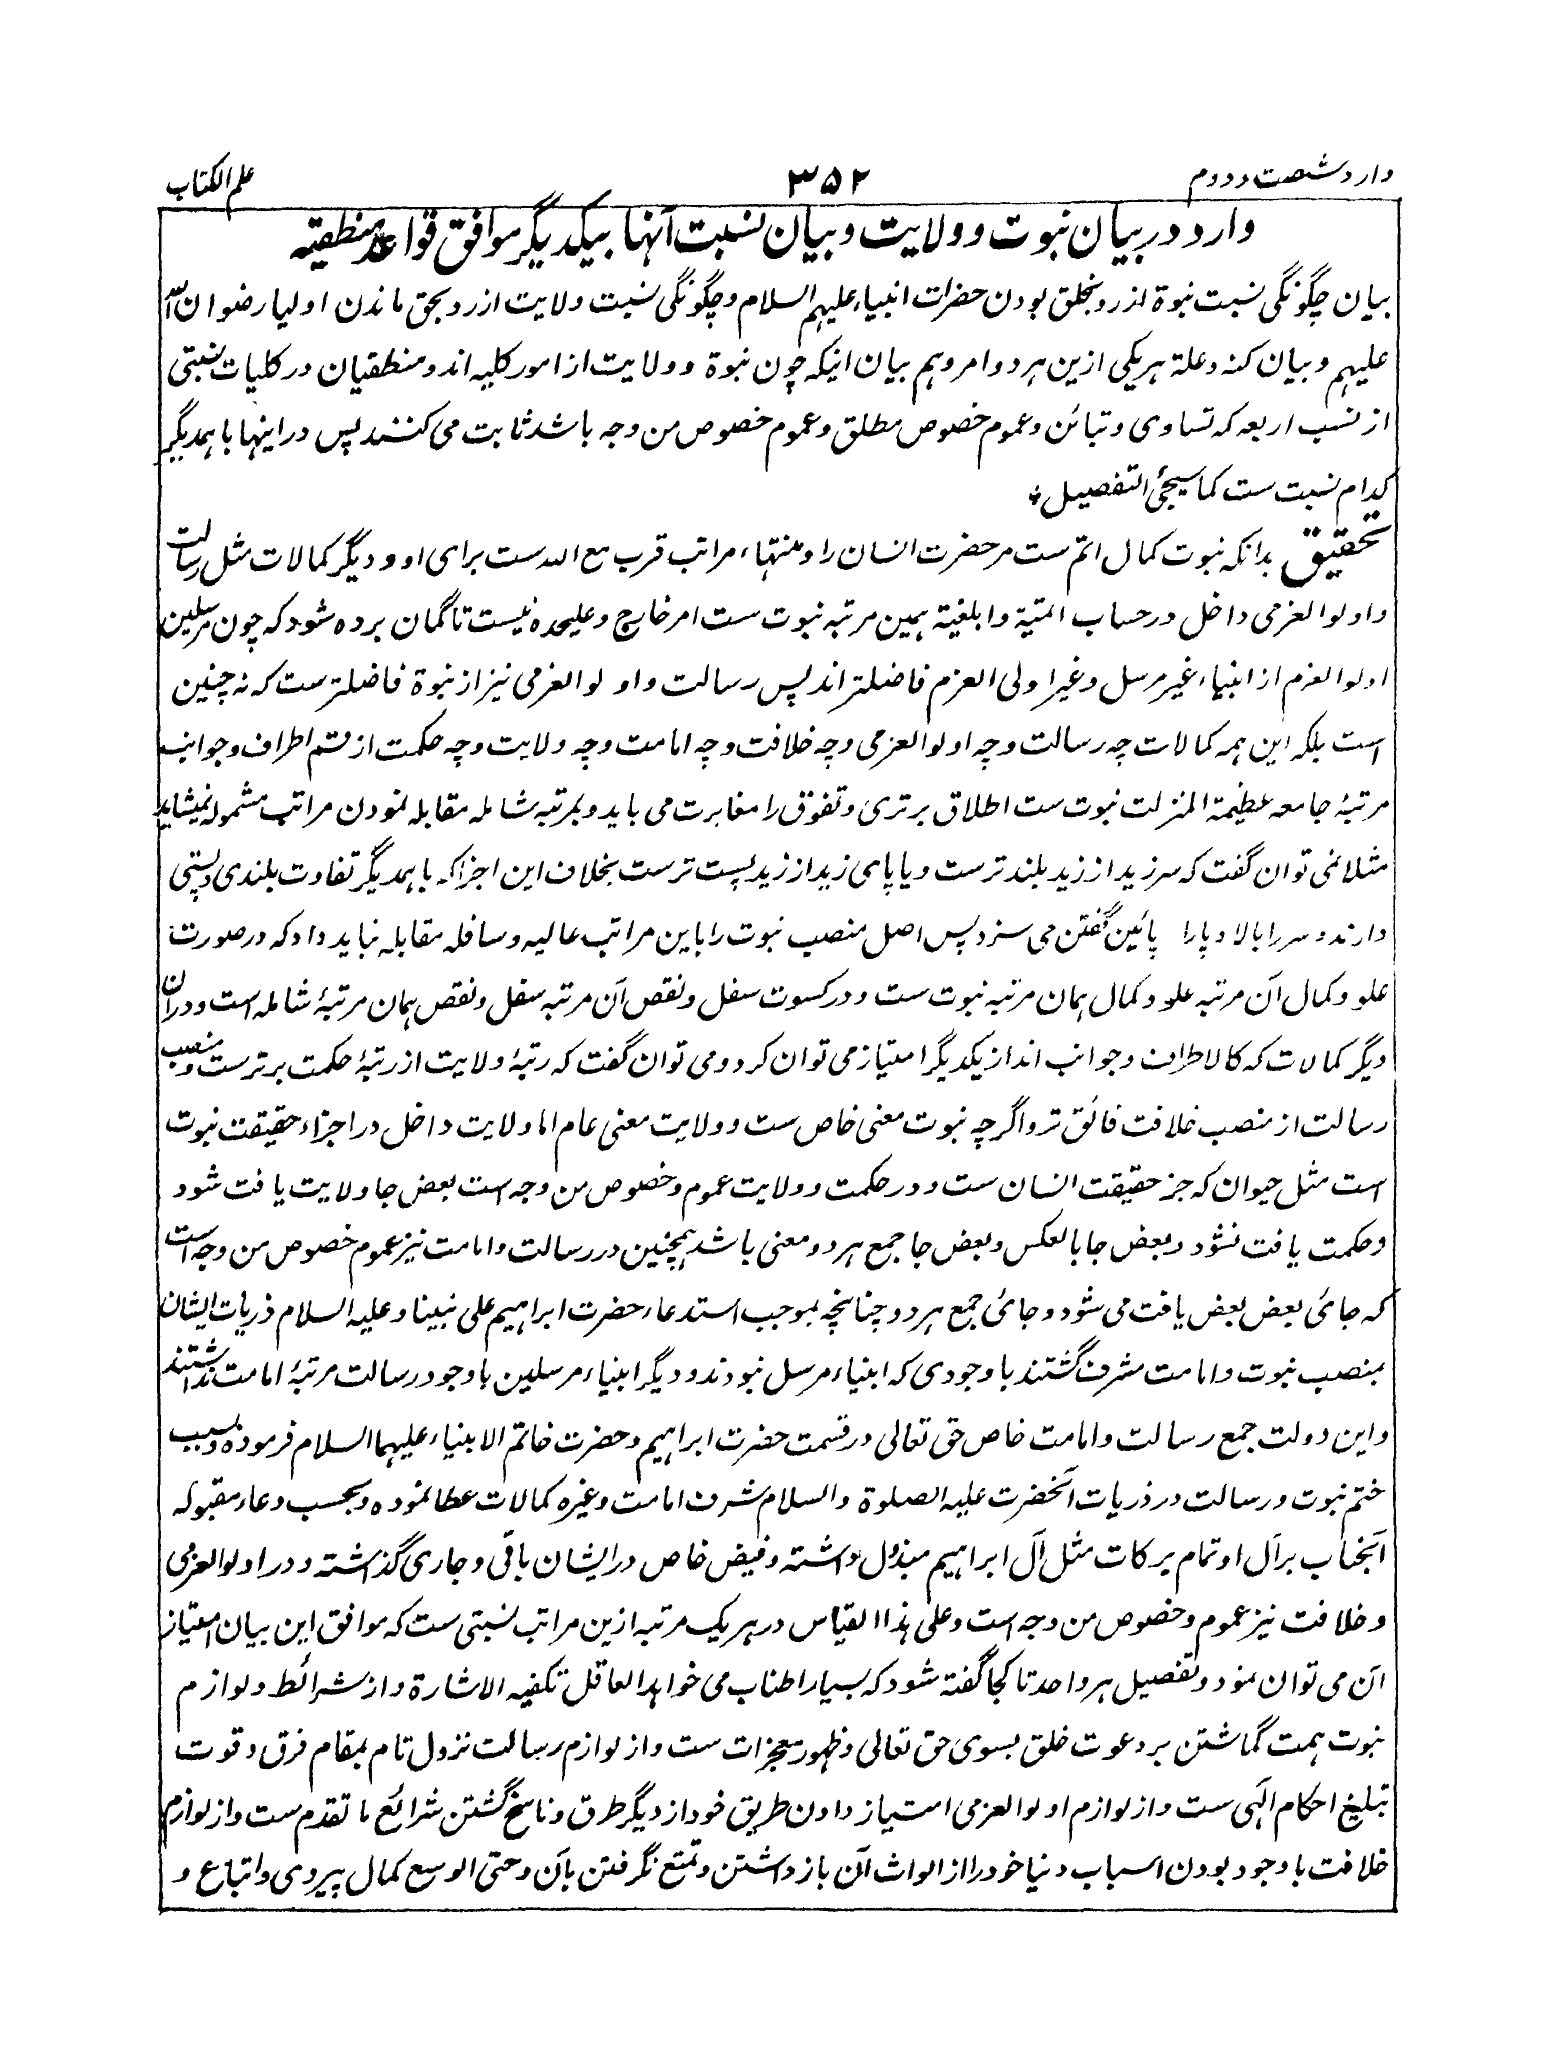 وارد شصت و دوم
۳۵۲
علم الکتاب
وارد در بیان نبوت و ولایت و بیان نسبت آنها بیکدیگر موافق قواعد منطقیه
بیان چگونگی نسبت نبوة از رو بخلق بودن حضرات انبیاء علیهم السلام و چگونگی نسبت ولایت از رو بحق ماندن اولیا رضوان الله
علیهم و بیان کنه و علة هریکی ازین هر دو امر و هم بیان اینکه چون نبوة و ولایت از امور کلیه اند و منطقیان در کلیات نسبتی
از نسب اربعه که تساوی و تبائن و عموم خصوص مطلق و عموم خصوص من وجه باشد ثابت می کنند پس در اینها با همدیگر
کدام نسبت ست کما سیجئ التفصیل
تحقیق بدانکه نبوت کمال اتم ست مر حضرت انسان را و منتهاء مراتب قرب مع الله ست برای او و دیگر کمالات مثل رسالت
و اولوالعزمی داخل در حساب اتمیّة و ابلغیة همین مرتبه نبوت ست امر خارج و علیحده نیست تا گمان برده شود که چون مرسلین
اولوالعزم از انبیاء غیر مرسل و غیر اولی العزم فاضلتر اند پس رسالت و اولوالعزمی نیز از نبوة فاضلتر ست که نه چنین
است بلکه این همه کمالات چه رسالت و چه اولوالعزمی و چه خلافت و چه امامت و چه ولایت و چه حکمت از قسم اطراف و جوانب
مرتبۀ جامعه عظیمة المنزلت نبوت ست اطلاق برتری و تفوق را مغایرت می باید و بمرتبه شامله مقابله نمودن مراتب مشموله نمیشاید
مثلا نمی توان گفت که سر زید از زید بلند تر ست و یا پای زید از زید پست تر ست بخلاف این اجزا که با همدیگر تفاوت بلندی و پستی
دارند و سر را بالا و پا را پائین گفتن می سزد پس اصل منصب نبوت را باین مراتب عالیه و سافله مقابله نباید داد که در صورت
علو و کمال آن مرتبه علو و کمال همان مرتبه نبوت ست و در کسوت سفل و نقص آن مرتبه سفل و نقص همان مرتبۀ شامله است و در آن
دیگر کمالات که کالاطراف و جوانب اند از یکدیگر امتیاز می توان کرد و می توان گفت که رتبۀ ولایت از رتبۀ حکمت برتر ست و منصب
رسالت از منصب خلافت فائق تر و اگرچه نبوت معنی خاص ست و ولایت معنی عام اما ولایت داخل در اجزاء حقیقت نبوت
است مثل حیوان که جز حقیقت انسان ست و در حکمت و ولایت عموم و خصوص من وجه است بعض جا ولایت یافت شود
و حکمت یافت نشود و بعض جا بالعکس و بعض جا جمع هر دو معنی باشد همچنین در رسالت و امامت نیز عموم خصوص من وجه است
که جائ بعض بعض یافت می شود و جائ جمع هر دو چنانچه بموجب استدعاء حضرت ابراهیم علی نبینا و علیه السلام ذریات ایشان
بمنصب نبوت و امامت مشرف گشتند با وجودی که انبیاء مرسل نبودند و دیگر انبیاء مرسلین باوجود رسالت مرتبۀ امامت نداشتند
و این دولت جمع رسالت و امامت خاص حق تعالی در قسمت حضرت ابراهیم و حضرت خاتم الانبیاء علیهما السلام فرموده و بسبب
ختم نبوت و رسالت در ذریات آنحضرت علیه الصلوة والسلام شرف امامت و غیره کمالات عطا نموده و بحسب دعاء مقبوله
آنجناب بر آل او تمام برکات مثل آل ابراهیم مبذول داشته و فیض خاص در ایشان باقی و جاری گذاشته و در اولوالعزمی
و خلافت نیز عموم و خصوص من وجه است و علی هذا القیاس در هر یک مرتبه ازین مراتب نسبتی ست که موافق این بیان امتیاز
آن می توان نمود و تفصیل هر واحد تا کجا گفته شود که بسیار اطناب می خواهد العاقل تکفیه الاشارة و از شرائط و لوازم
نبوت همت گماشتن بر دعوت خلق بسوی حق تعالی و ظهور معجزات ست و از لوازم رسالت نزول تام بمقام فرق و قوت
تبلیغ احکام الهی ست و از لوازم اولوالعزمی امتیاز دادن طریق خود از دیگر طرق و ناسخ گشتن شرائع ما تقدم ست و از لوازم
خلافت با وجود بودن اسباب دنیا خود را از الواث آن باز داشتن و تمتع نگرفتن بآن و حتی الوسع کمال پیروی و اتباع و